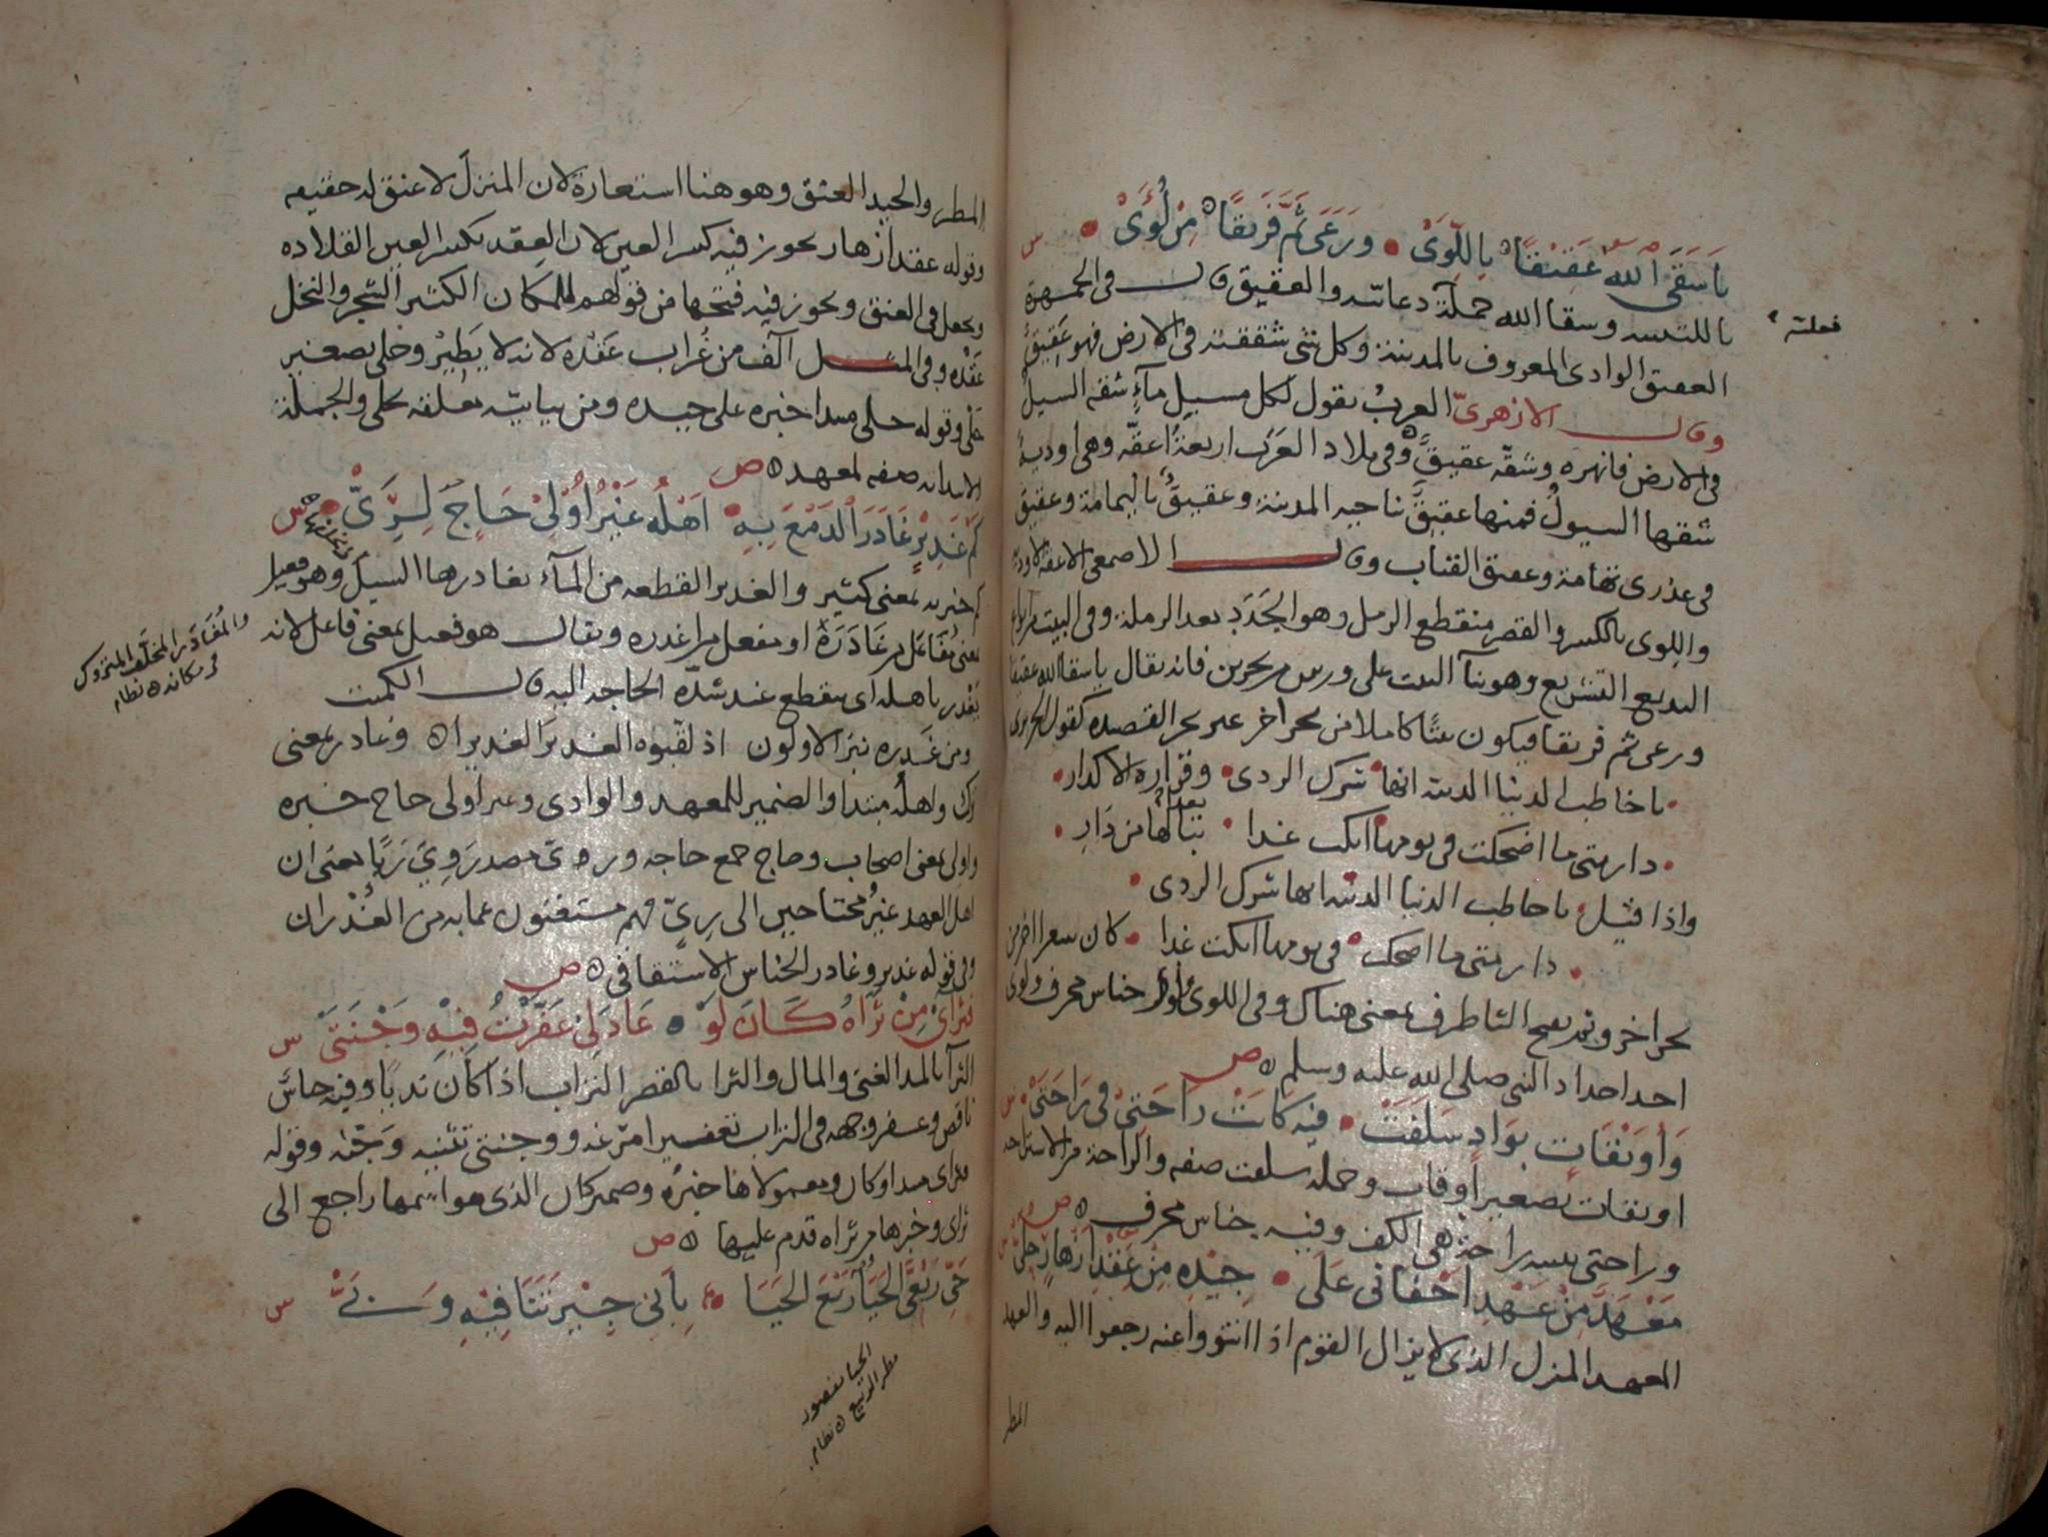 يا سَقَى الله عَقِيقًا بِاللِّوَىْ • ورَعَى ثَمَّ فَرِيقًا مِنْ لُؤَىْ • س
يا للتنبيه وسقا الله جملة دعائيه والعقيق قال في الجمهرة
العقيق الوادى المعروف بالمدينة وكل شئ شققته في الارض فهو عَقِيقٌ
وقال الازهرىّ العرب تقول لكل مسيل مآءٍ شقه السيل
فى الارض فانهره وشقّه عقيقٌ وفى بلاد العَرَب اربعة اعقّه وهى اودية
شقها السيول فمنها عقيق بناحيه المدينة وعقيقٌ باليمامة وعقيق
فى عذرى تهامة وعقيق القنان وقال الاصمعى الاعقة الاودية
واللوى بالكسر والقصر منقطع الرمل وهو الجَدَدُ بعد الرملة وفى البيت من انواع
البديع التشريع وهو بنآ البيت على وزنين من بحرين فانه يقال يا سقا الله عقيقا
ورعى ثم فريقا فيكون بيتًا كاملا من بحر اخر غير بحر القصيده كقول الحريرى
• يا خاطب الدنيا الدنيه انها • شرك الردى • وقرارة الاكدار •
• دار متى ما اضحكت فى يومها ابكت غدا • بُعدًا لها من دَارِ •
واذا قيل • يا خاطب الدنيا الدنيه انها شرك الردى •
• دار متى ما اضحكت • فى يومها ابكت غدا • كان شعرا اخر من
بحر اخر وثم بفتح الثا ظرف بمعنى هناك وفى اللوى ولؤى جناس محرف ولؤى
احد اجداد النبى صلى الله عليه وسلم ص
وَاُوَيْقَاتٍ بِوَادٍ سَلَفَتْ • فيه كانَتْ رَاحَتِىْ فى رَاحَتَىْ • س
اويقات تصغير اوقات وجمله سلفت صفه والراحة من الاستراحه
وراحتى تثنيه راحة هى الكف وفيه جناس محرف ص
مَعْهَدٌ مِنْ عَهْدِ اَجْفانى عَلَى • جِيْدِهِ مِنْ عِقْدِ اَزْهارٍ حُلَىْ س
المعهد المنزل الذى لا يزال القوم اذا انتووا عنه رجعوا اليه والعهد
المطر
فعلته
المطر والجيد العنق وهو هنا استعارة لان المنزل لا عنق له حقيقه
وقوله عقد ازهار يجوز فيه كسر العين لان العِقد بكسر العين القلاده
ويجعل فى العنق ويجوز فيه فتحها من قولهم للمكان الكثير الشجر والنخل
عَقْده وفى المثل آلف من غُراب عَقْده لانه لا يَطِيرُ وحلى تصغير
حَلْى وقوله حلى مبتدا خبره على جيده ومن بيانيّه متعلقه بحلى والجملة
الابتدائيه صفه لمعهد ص
كَمْ غَدِيْرٍ غَادَرَ الدَمْعَ بِهِ • اَهْلُهُ غَيْرُ اُوْلِىْ حَاجٍ لِرَىّْ • س
كم خبريه بمعنى كثير والغدير القطعه من المآء يغادرها السيل وهو فعيل
بمعنى مُفَاعَل من غَادَرَهُ او مفعل من اغدره ويقال هو فعيل بمعنى فاعل لانه
يَغْدر باهله اى ينقطع عند شدّه الحاجه اليه قال الكميت
ومن غَدِره نبز الاولون اذ لقّبوه الغديرَ الغديرا وغادر بمعنى
ترك واهله مبتدا والضمير للمعهد والوادى وغير اولى حاج خبره
واولى بمعنى اصحاب وحاج جمع حاجه وروى مصدر رَوِيَ رَيًّا بمعنى ان
اهل العهد غير محتاجين الى رىٍّ فهم مستغنون عما به من الغُدْران
وفى قوله غدير وغادر الجناس الاشتقاقى ص
فثَرَآئى مِنْ ثَرَاهُ كَانَ لَوْ • عَادَ لِىْ عَفَّرْتُ فِيْهِ وَجْنَتَىْ س
الثرآ بالمد الغنى والمال والثرا بالقصر التراب اذا كان نديًا وفيه جناس
ناقص وعفر وجهه فى التراب تعفيرا مرّغه ووجنتى تثنيه وَجْنه وقوله
فثراى مبتدا وكان ومعمولاها خبره وضمير كان الذى هو اسمها راجع الى
ثراى وخبرها من ثراه قدم عليها ص
حَىِّ رَبْعِىَّ الحَيَا رَبْعَ الحَيَا • بِاَبِى جِيْرَتَنَا فِيْهِ وَبَىّْ س
والمُغَادَر المخلَّف المتروك
فى مكانه نظام
الحيا مقصور
مطر الربيع نظام